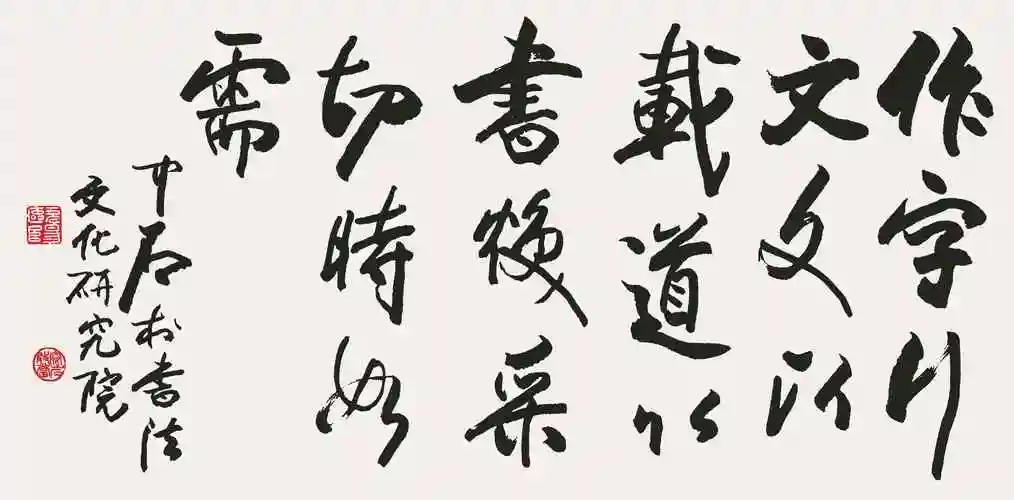 作字行
文文以
載道以
書煥采
切時如
需
中石於書法
文化研究院